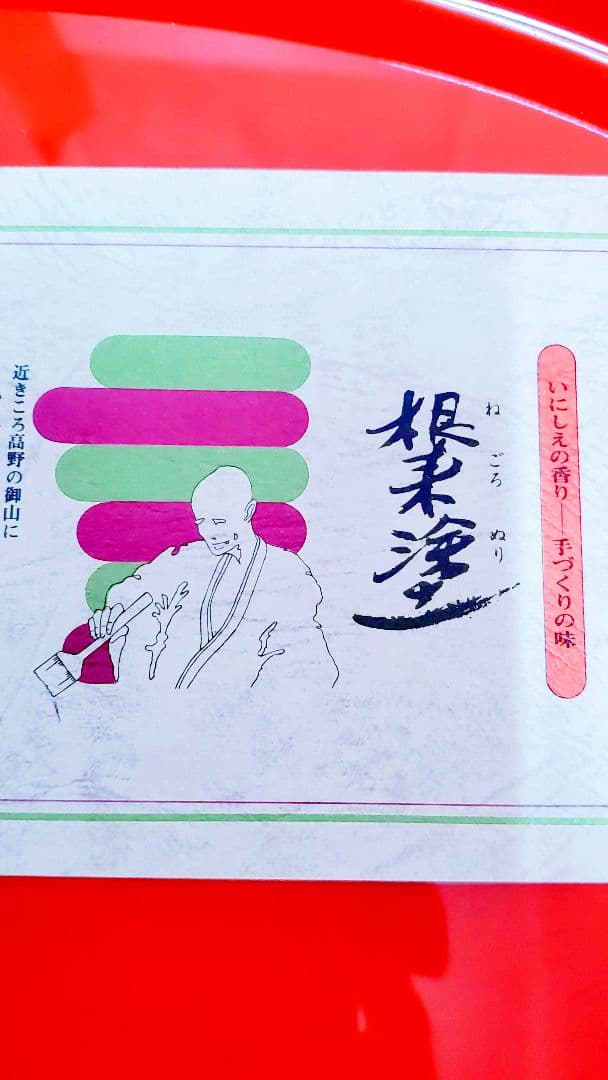 いにしえの香り――手づくりの味
ねごろぬり
根来塗
近きころ高野の御山に